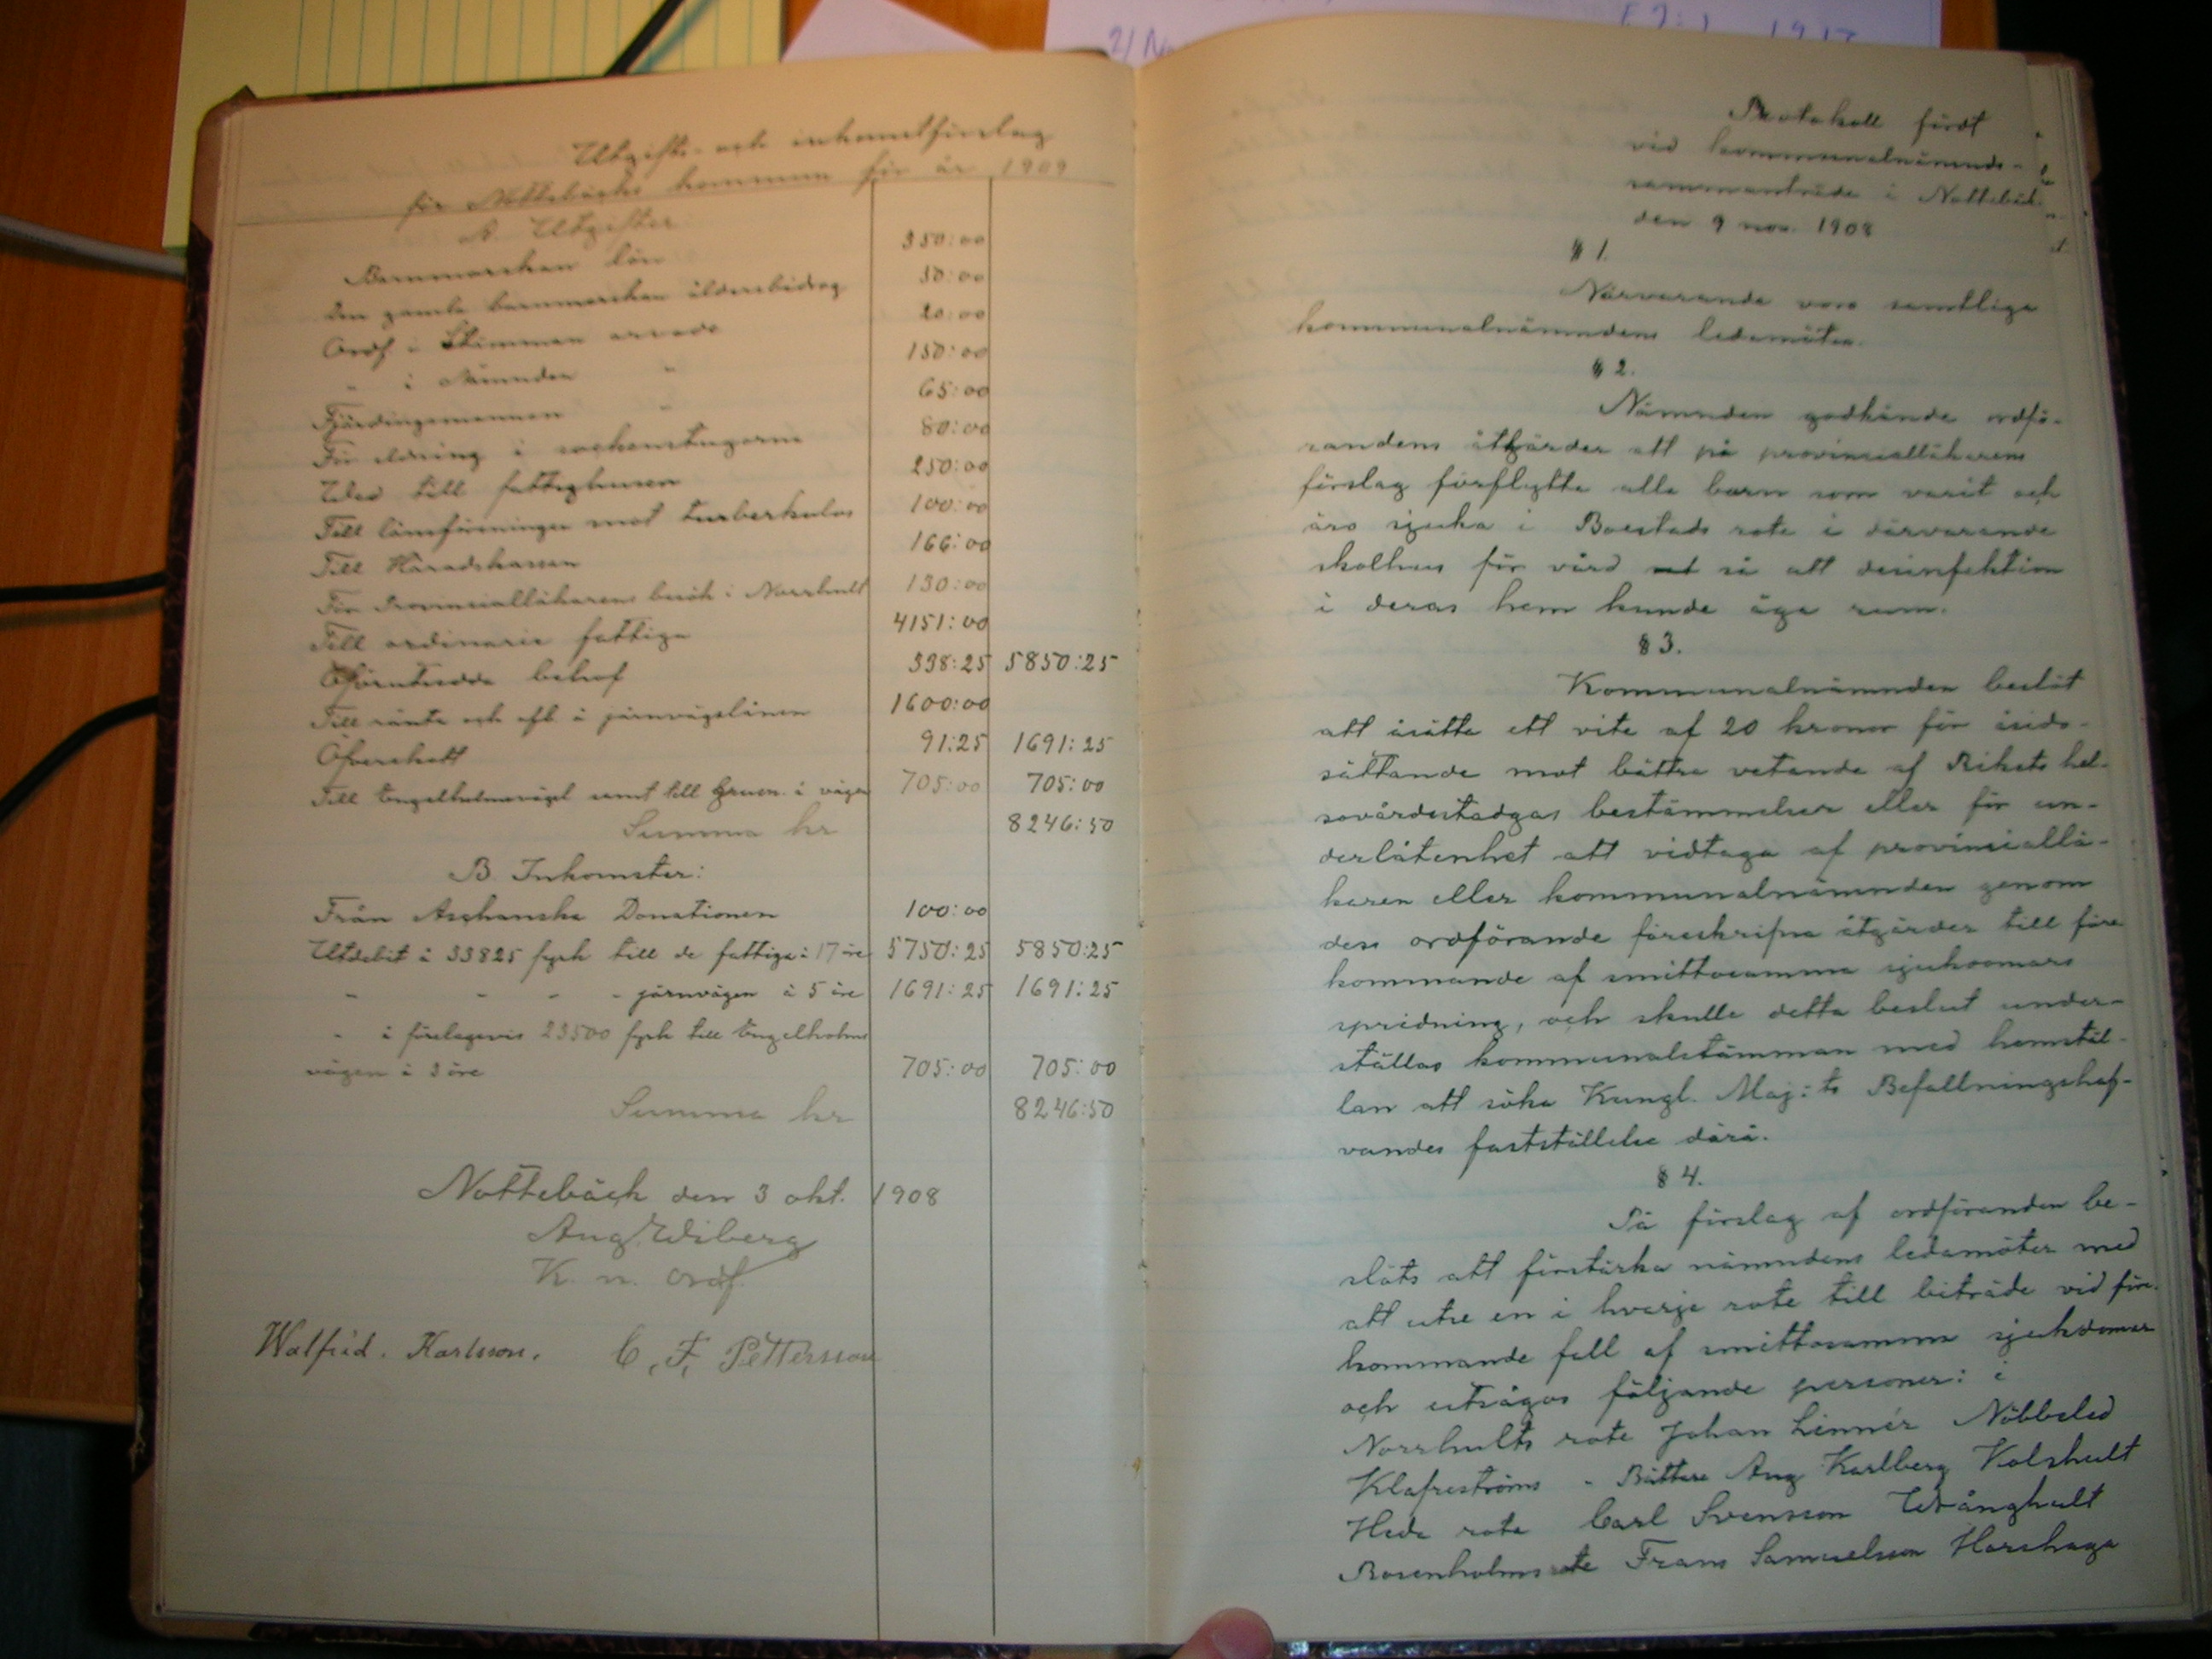 2/
Utgifts- och inkomstförslag
för Nottebäcks kommun för år 1909
A. Utgifter
Barnmorskan lön 350:00
Den gamla barnmorskan åldersbidrag 50:00
Ordf. i Stämman arvode 20:00
" i Nämnden " 150:00
Fjärdingsmannen " 65:00
För eldning i sockenstugorna 80:00
Wed till fattighusen 250:00
Till länsföreningen mot turberkulos 100:00
Till Häradskassan 166:00
För Provincialläkarens besök i Norrhult 130:00
Till ordinarie fattiga 4151:00
Oförutsedda behof 338:25 5850:25
Till ränta och afb. å järnvägslånen 1600:00
Öfverskott 91:25 1691:25
Till Engelholmsvägel samt till grusn. å vägen 705:00 705:00
Summa kr 8246:50
B. Inkomster:
Från Aschanska Donationen 100:00
Utdebit å 33825 fyrk till de fattiga à 17 öre 5750:25 5850:25
" " " " järnvägen à 5 öre 1691:25 1691:25
" å förslagsvis 23500 fyrk till Engelholms
vägen à 3 öre 705:00 705:00
Summa kr 8246:50
Nottebäck den 3 okt. 1908
Aug Wiberg
K. n. ordf.
Walfrid. Karlsson. C. F. Pettersson
Protokoll fördt
vid kommunalnämnds-
sammanträde i Nottebäck
den 9 nov. 1908
§ 1.
Närvarande voro samtliga
kommunalnämndens ledamöter.
§ 2.
Nämnden godkände ordfö-
randens åtgärder att på provincialläkarens
förslag förflytta alla barn som varit och
äro sjuka i Boestads rote i därvarande
skolhus för vård så att desinfektion
i deras hem kunde äga rum.
§ 3.
Kommunalnämnden beslöt
att åsätta ett vite af 20 kronor för åsido-
sättande mot bättre vetande af Rikets hel-
sovårdsstadgas bestämmelser eller för un-
derlåtenhet att vidtaga af provinciallä-
karen eller kommunalnämnden genom
dess ordförande föreskrifna åtgärder till före
kommande af smittosamma sjukdomars
spridning, och skulle detta beslut under-
ställas kommunalstämman med hemstäl-
lan att söka Kungl. Maj:ts Befallningshaf-
vandes fastställelse därå.
§ 4.
På förslag af ordföranden be-
slöts att förstärka nämndens ledamöter med
att utse en i hvarje rote till biträde vid före-
kommande fall af smittosamma sjukdomar
och utsågos följande personer: i
Norrhults rote Johan Linnér Nöbbeled
Klafreströms " Bättare Aug Karlberg Kolshult
Heda rote Carl Svensson Wrånghult
Rosenholms rote Frans Samuelsson Horshaga